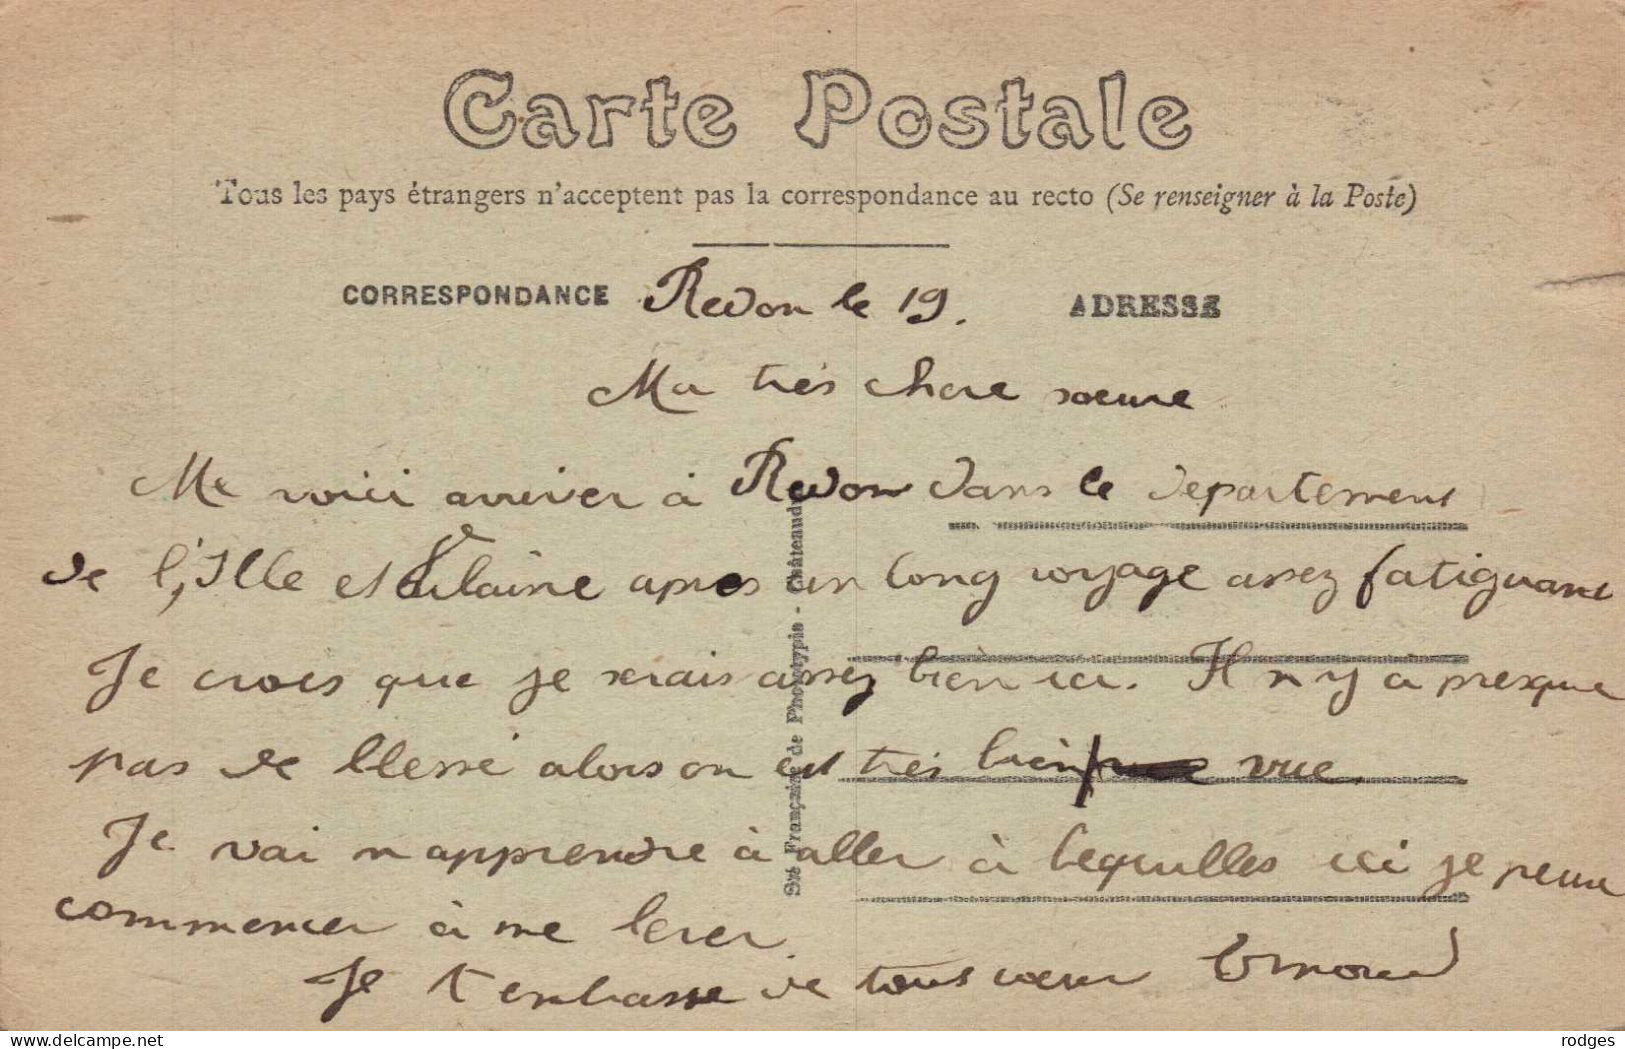 Carte Postale
Tous les pays étrangers n'acceptent pas la correspondance au recto (Se renseigner à la Poste)
CORRESPONDANCE Redon le 19. ADRESSE
Ma très chere soeure
Me voici arriver à Redon dans le departement
de l'Ille et Vilaine apres un long voyage assez fatiguant
Je crois que je serais assez bien ici. Il n y a presque
pas de blessé alors on est très bien vue.
Je vai m apprendre à aller à bequilles ici je peux
commencer à me lever
Je t embrasse de tous coeur
Sté Française de Phototypie - Châteaudun
www.delcampe.net
rodges